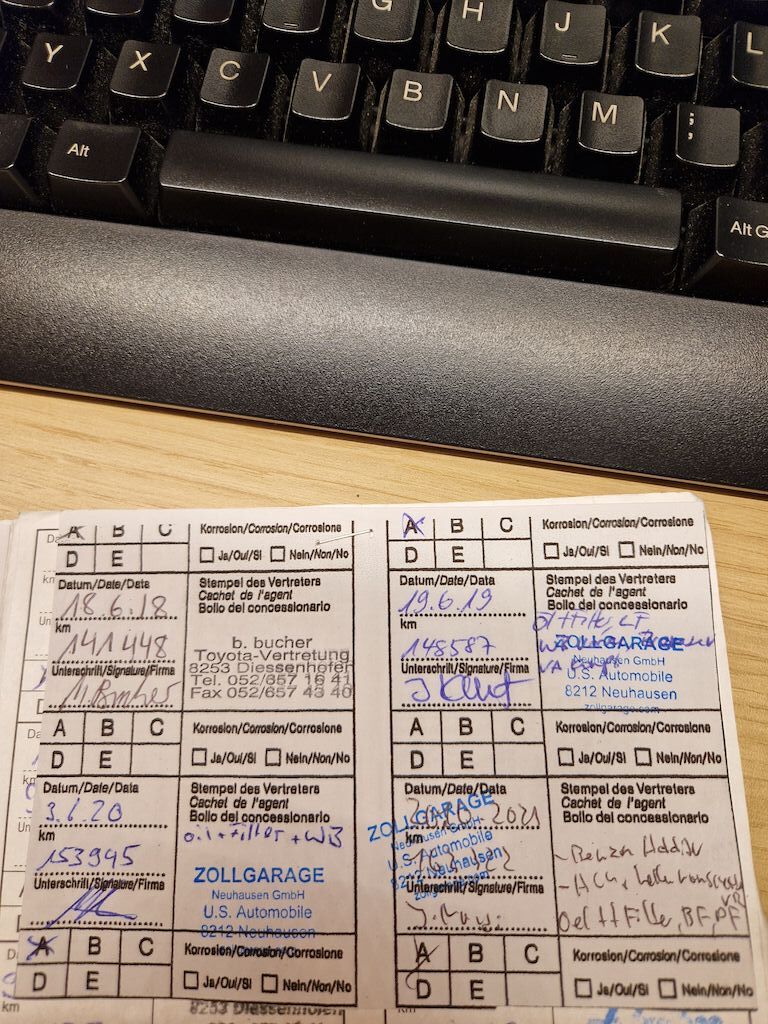 G H J K L
Y X C V B N M ; :
Alt Alt G
A B C Korrosion/Corrosion/Corrosione
D E Ja/Oui/Si Nein/Non/No
Datum/Date/Data
18.6.18
km
141448
Unterschrift/Signature/Firma
Stempel des Vertreters
Cachet de l'agent
Bollo del concessionario
b. bucher
Toyota-Vertretung
8253 Diessenhofen
Tel. 052/657 16 41
Fax 052/657 43 40
A B C Korrosion/Corrosion/Corrosione
D E Ja/Oui/Si Nein/Non/No
Datum/Date/Data
3.6.20
km
153945
Unterschrift/Signature/Firma
Stempel des Vertreters
Cachet de l'agent
Bollo del concessionario
oil + Filter + WB
ZOLLGARAGE
Neuhausen GmbH
U.S. Automobile
8212 Neuhausen
A B C Korrosion/Corrosion/Corrosione
D E Ja/Oui/Si Nein/Non/No
8253 Diessenhofen
km
A B C Korrosion/Corrosion/Corrosione
D E Ja/Oui/Si Nein/Non/No
Datum/Date/Data
19.6.19
km
148587
Unterschrift/Signature/Firma
Stempel des Vertreters
Cachet de l'agent
Bollo del concessionario
ZOLLGARAGE
Neuhausen GmbH
U.S. Automobile
8212 Neuhausen
zollgarage.com
A B C Korrosion/Corrosion/Corrosione
D E Ja/Oui/Si Nein/Non/No
Datum/Date/Data
2021
km
Unterschrift/Signature/Firma
ZOLLGARAGE
Neuhausen GmbH
U.S. Automobile
8212 Neuhausen
zollgarage.com
Stempel des Vertreters
Cachet de l'agent
Bollo del concessionario
- Benzin Additiv
Oel + Filter, BF, PF
A B C Korrosion/Corrosion/Corrosione
D E Ja/Oui/Si Nein/Non/No
km